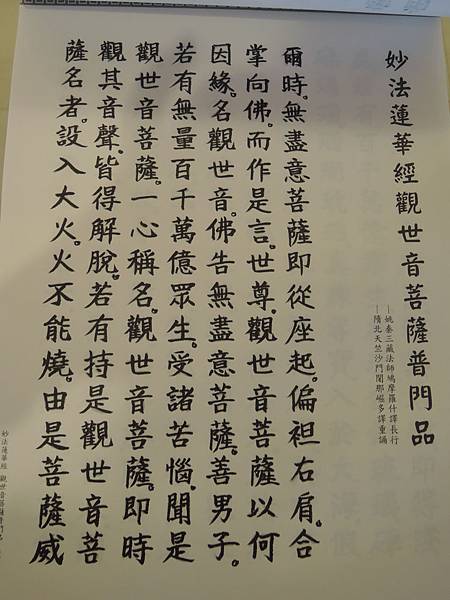 妙法蓮華經觀世音菩薩普門品
—姚秦三藏法師鳩摩羅什譯長行
—隋北天竺沙門闍那崛多譯重誦
爾時。無盡意菩薩即從座起。偏袒右肩。合
掌向佛。而作是言。世尊。觀世音菩薩以何
因緣。名觀世音。佛告無盡意菩薩。善男子。
若有無量百千萬億眾生。受諸苦惱。聞是
觀世音菩薩。一心稱名。觀世音菩薩。即時
觀其音聲。皆得解脫。若有持是觀世音菩
薩名者。設入大火。火不能燒。由是菩薩威
妙法蓮華經 觀世音菩薩普門品